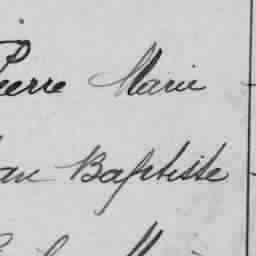 Pierre Marie
Jean Baptiste